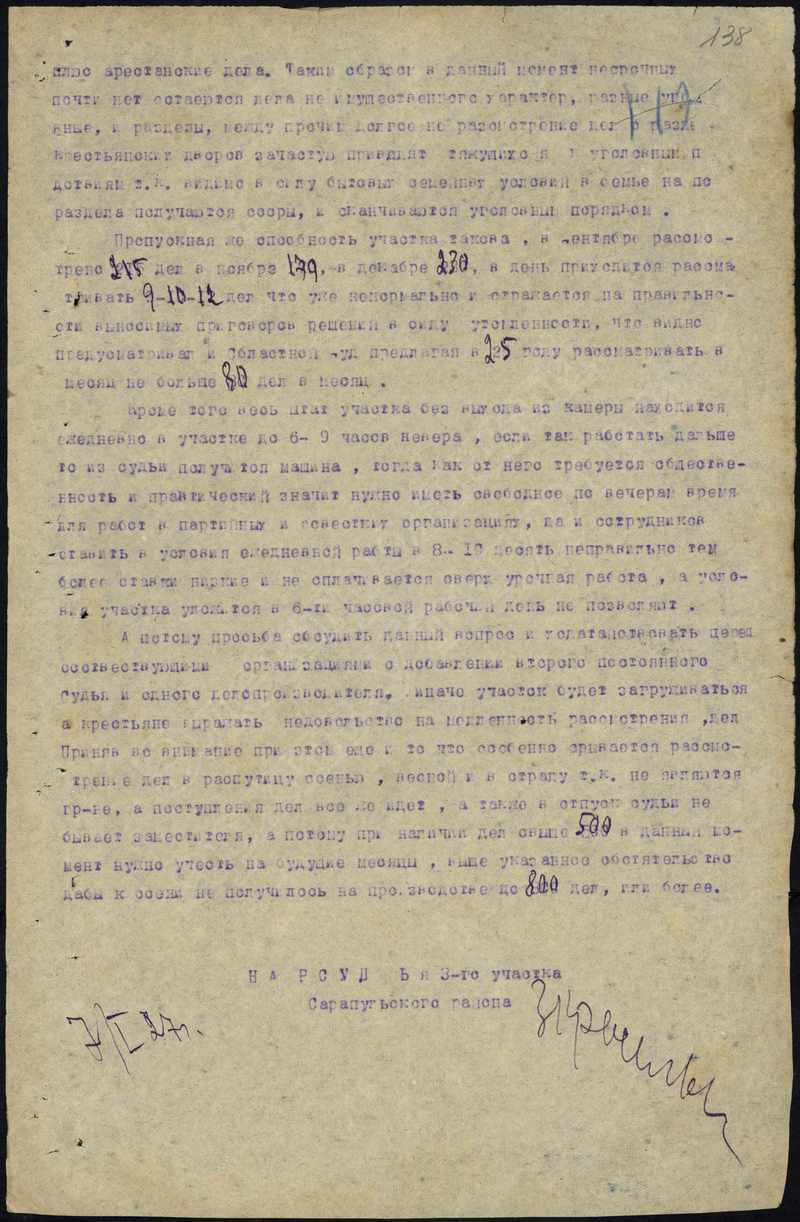 138
117
плюс арестанские дела. Таким образом в данный момент несрочных
почти нет остаются дела не имущественного характер, разные
вные, и разделы, между прочим долгое не разсмотрение дел о разде
крестьянских дворов зачастую приводит тяжущихся к уголовным п
дствиям т.к. видимо в силу бытовых семейных условий в семье на по
раздела получаются ссоры, и оканчиваются уголовным порядком .
Пропускная же способность участка такова , в сентябре рассмо-
трено 215 дел в ноябре 179, в декабре 230, в день приходится рассма
тривать 9-10-12 дел что уже ненормально и отражается на правильно-
сти выносимых приговоров решений в силу утомленности, что видно
предусматривал и Областной суд предлагая в 25 году рассматривать в
месяц не больше 80 дел в месяц .
Кроме того весь штат участка без выхода из камеры находится
ежедневно в участке до 6- 9 часов вечера , если так работать дальше
то из судьи получится машина , тогда как от него требуется обществе-
нность и практический значит нужно иметь свободное по вечерам время
для работ в партийных и советских организациях, да и сотрудников
ставить в условия ежедневной работы в 8- 10 десять неправильно тем
более ставки низкие и не оплачивается сверх урочная работа , а усло-
вия участка уложится в 6-ти часовой рабочий день не позволяют .
А потому просьба обсудить данный вопрос и ходатайствовать перед
соотвествующими организациями о добавлении второго постоянного
судьи и одного делопроизводителя, иначе участок будет загруживаться
а крестьяне выражать недовольство на медленность рассмотрения ,дел
Приняв во внимание при этом еще и то что особенно срывается рассмо-
трение дел в распутицу осенью , весной и в страду т.к. не являются
гр-не, а поступления дел все же идет , а также в отпуск судьи не
бывает заместителя, а потому при наличии дел свыше 500 в данный мо-
мент нужно учесть на будущие месяцы , выше указанное обстятельство
дабы к осени не получилось на производстве до 800 дел, или более.
НАРСУДЬЯ 3-го участка
Сарапульского района
7/I 27г.